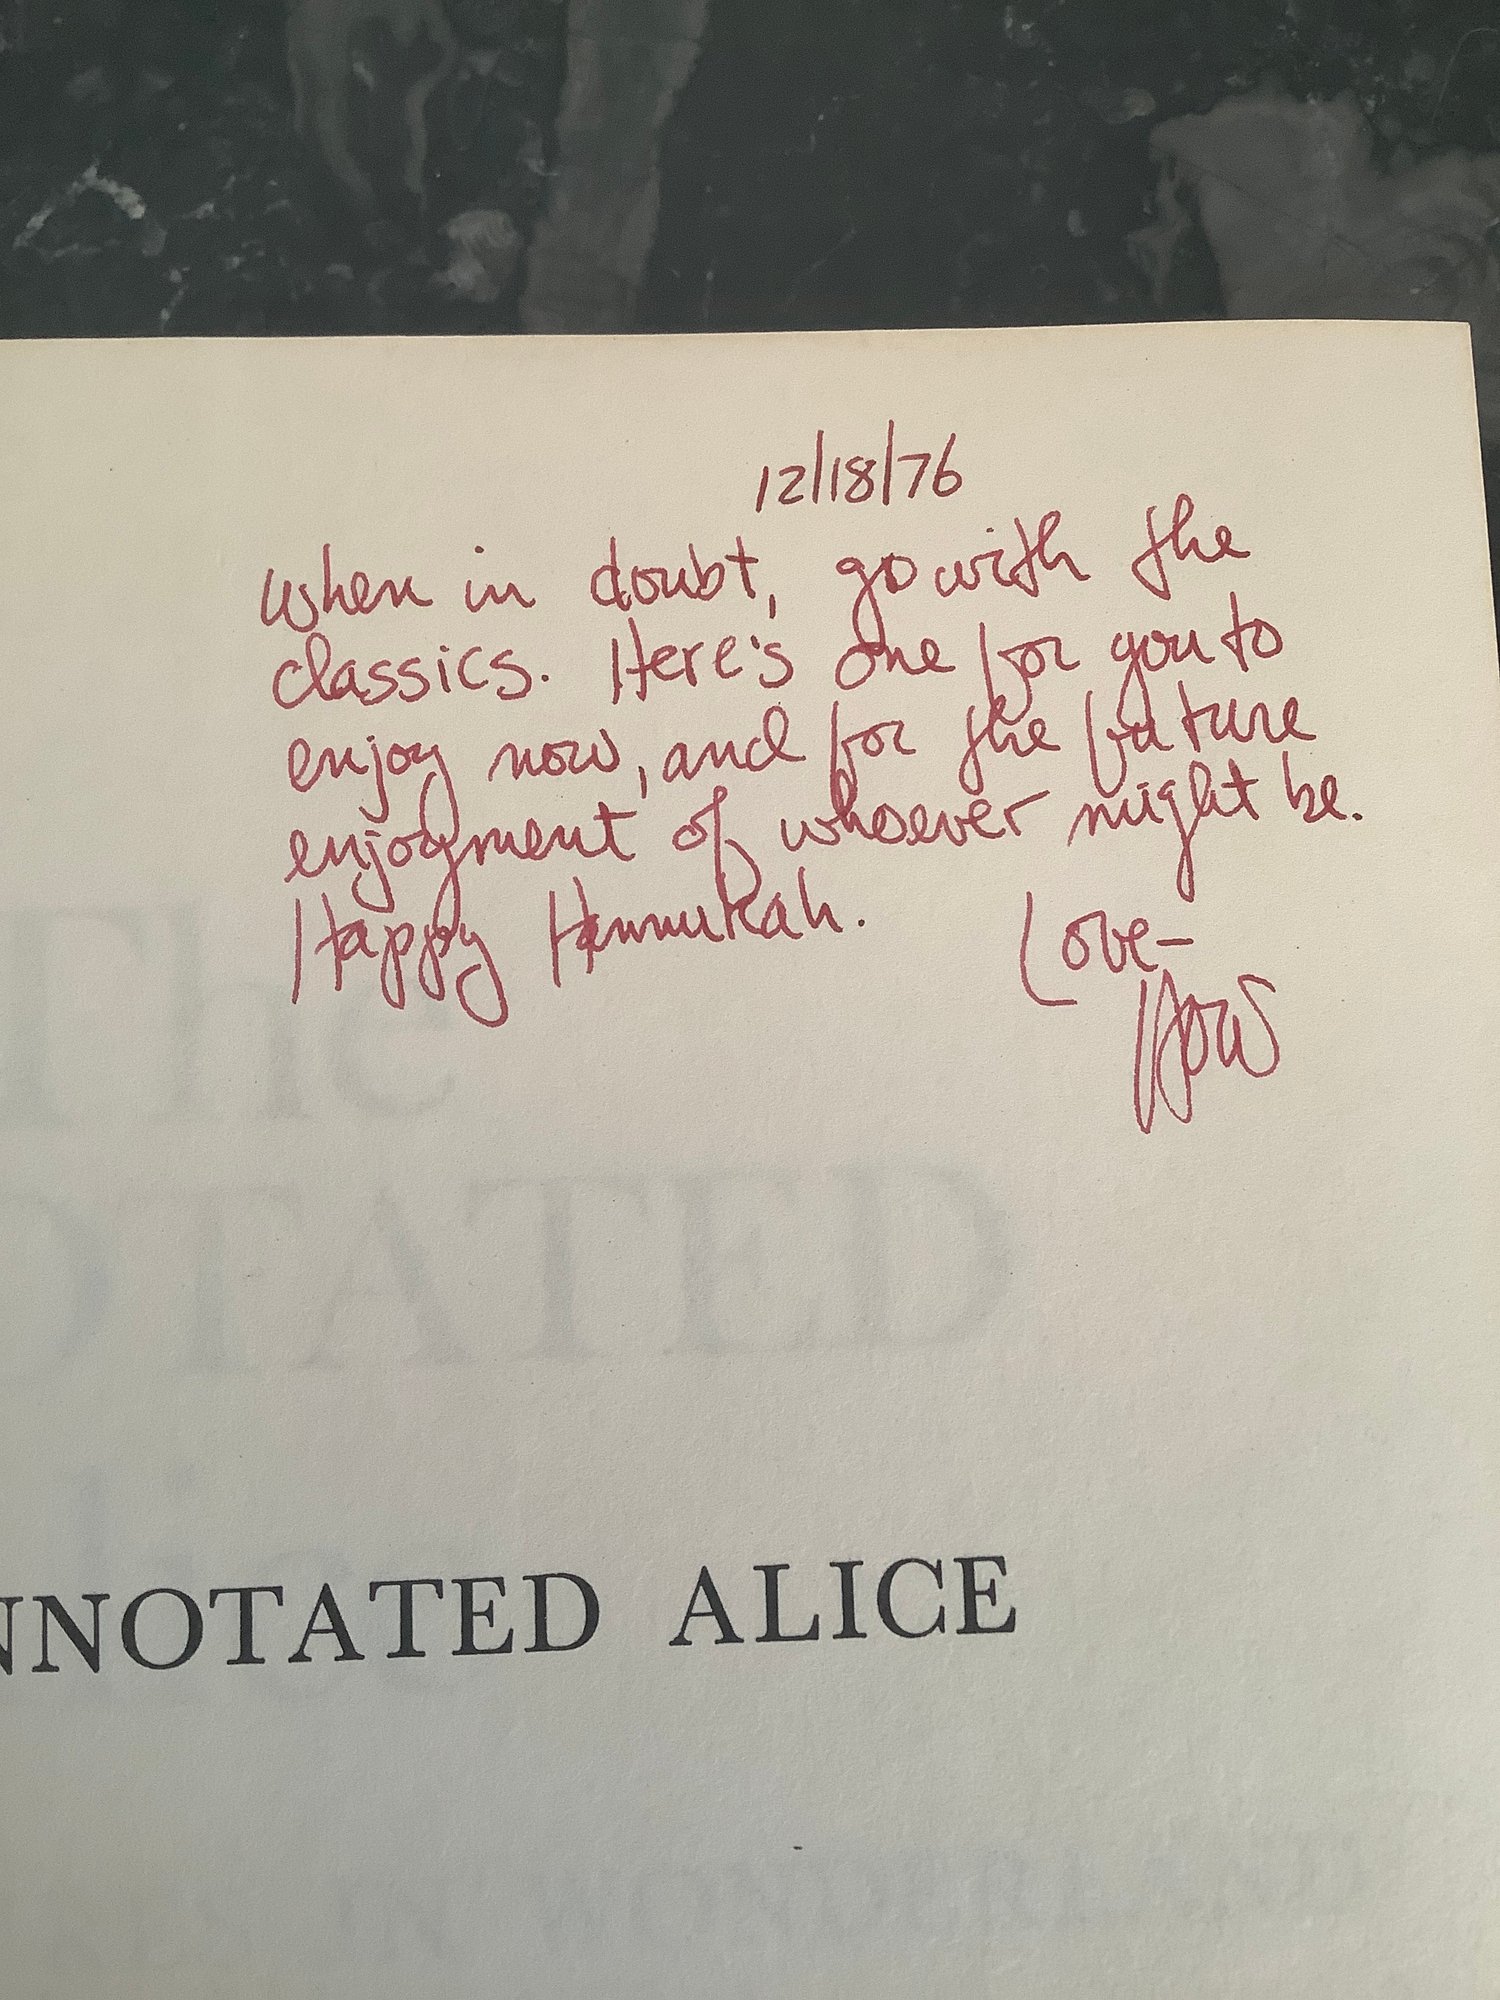 12/18/76
When in doubt, go with the
classics. Here's one for you to
enjoy now, and for the future
enjoyment of whoever might be.
Happy Hannukah.
Love—
How
The
OTATED
NNOTATED ALICE
WONDERLAND